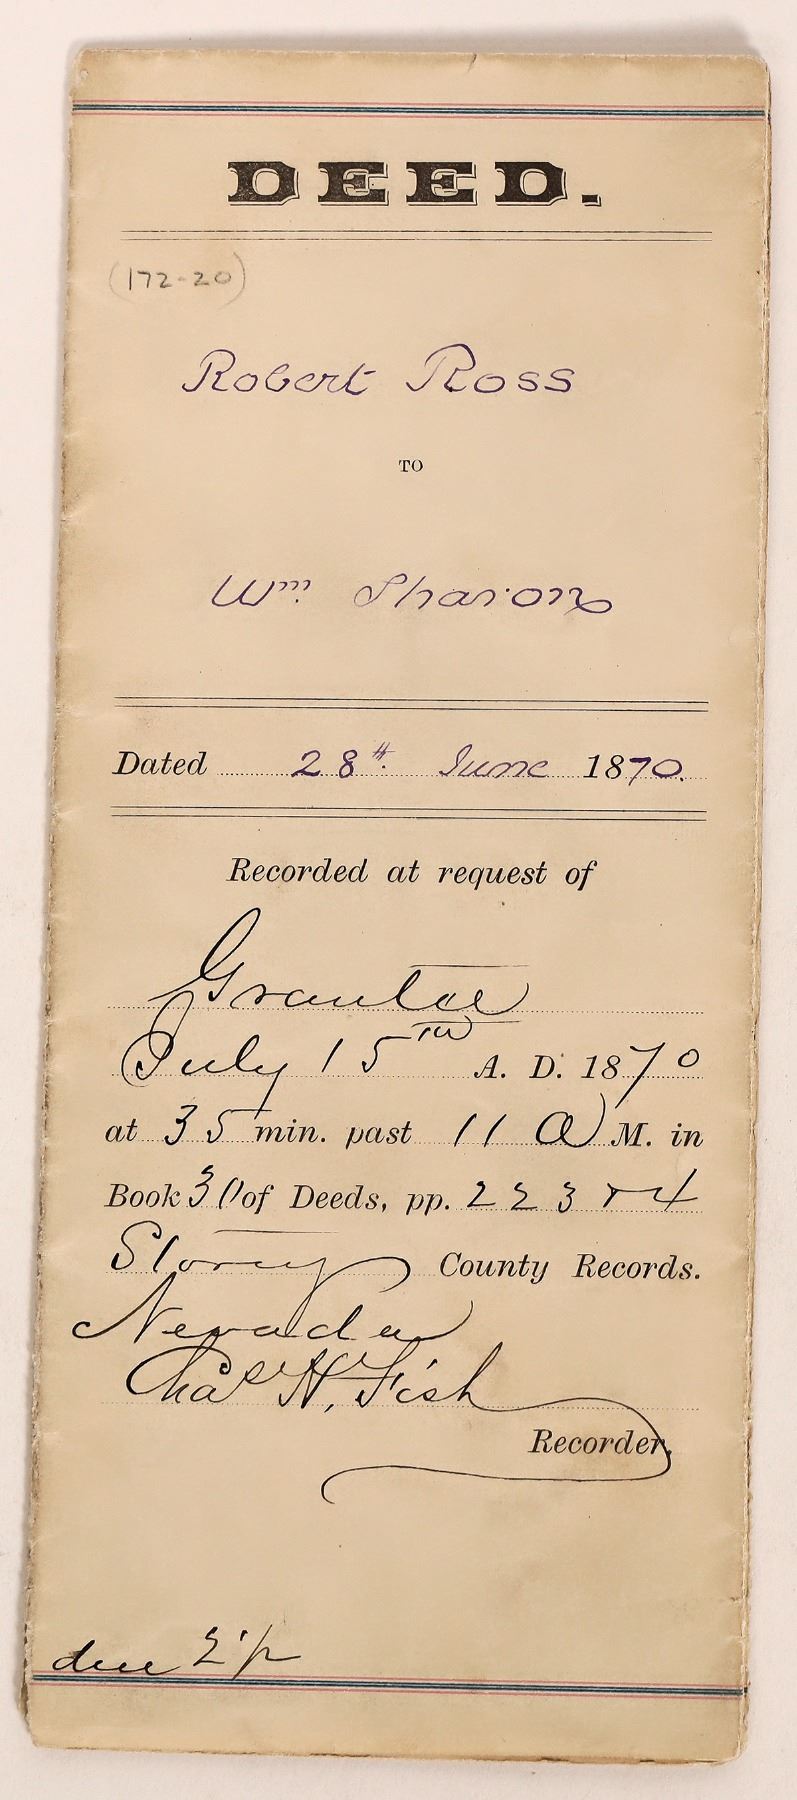 DEED.
(172-20)
Robert Ross
TO
Wm. Sharon
Dated 28th June 1870.
Recorded at request of
Grantee
July 15th A. D. 1870
at 35 min. past 11 A M. in
Book 30 of Deeds, pp. 223 & 4
Storey County Records.
Nevada
Chas H. Fish
Recorder.
due